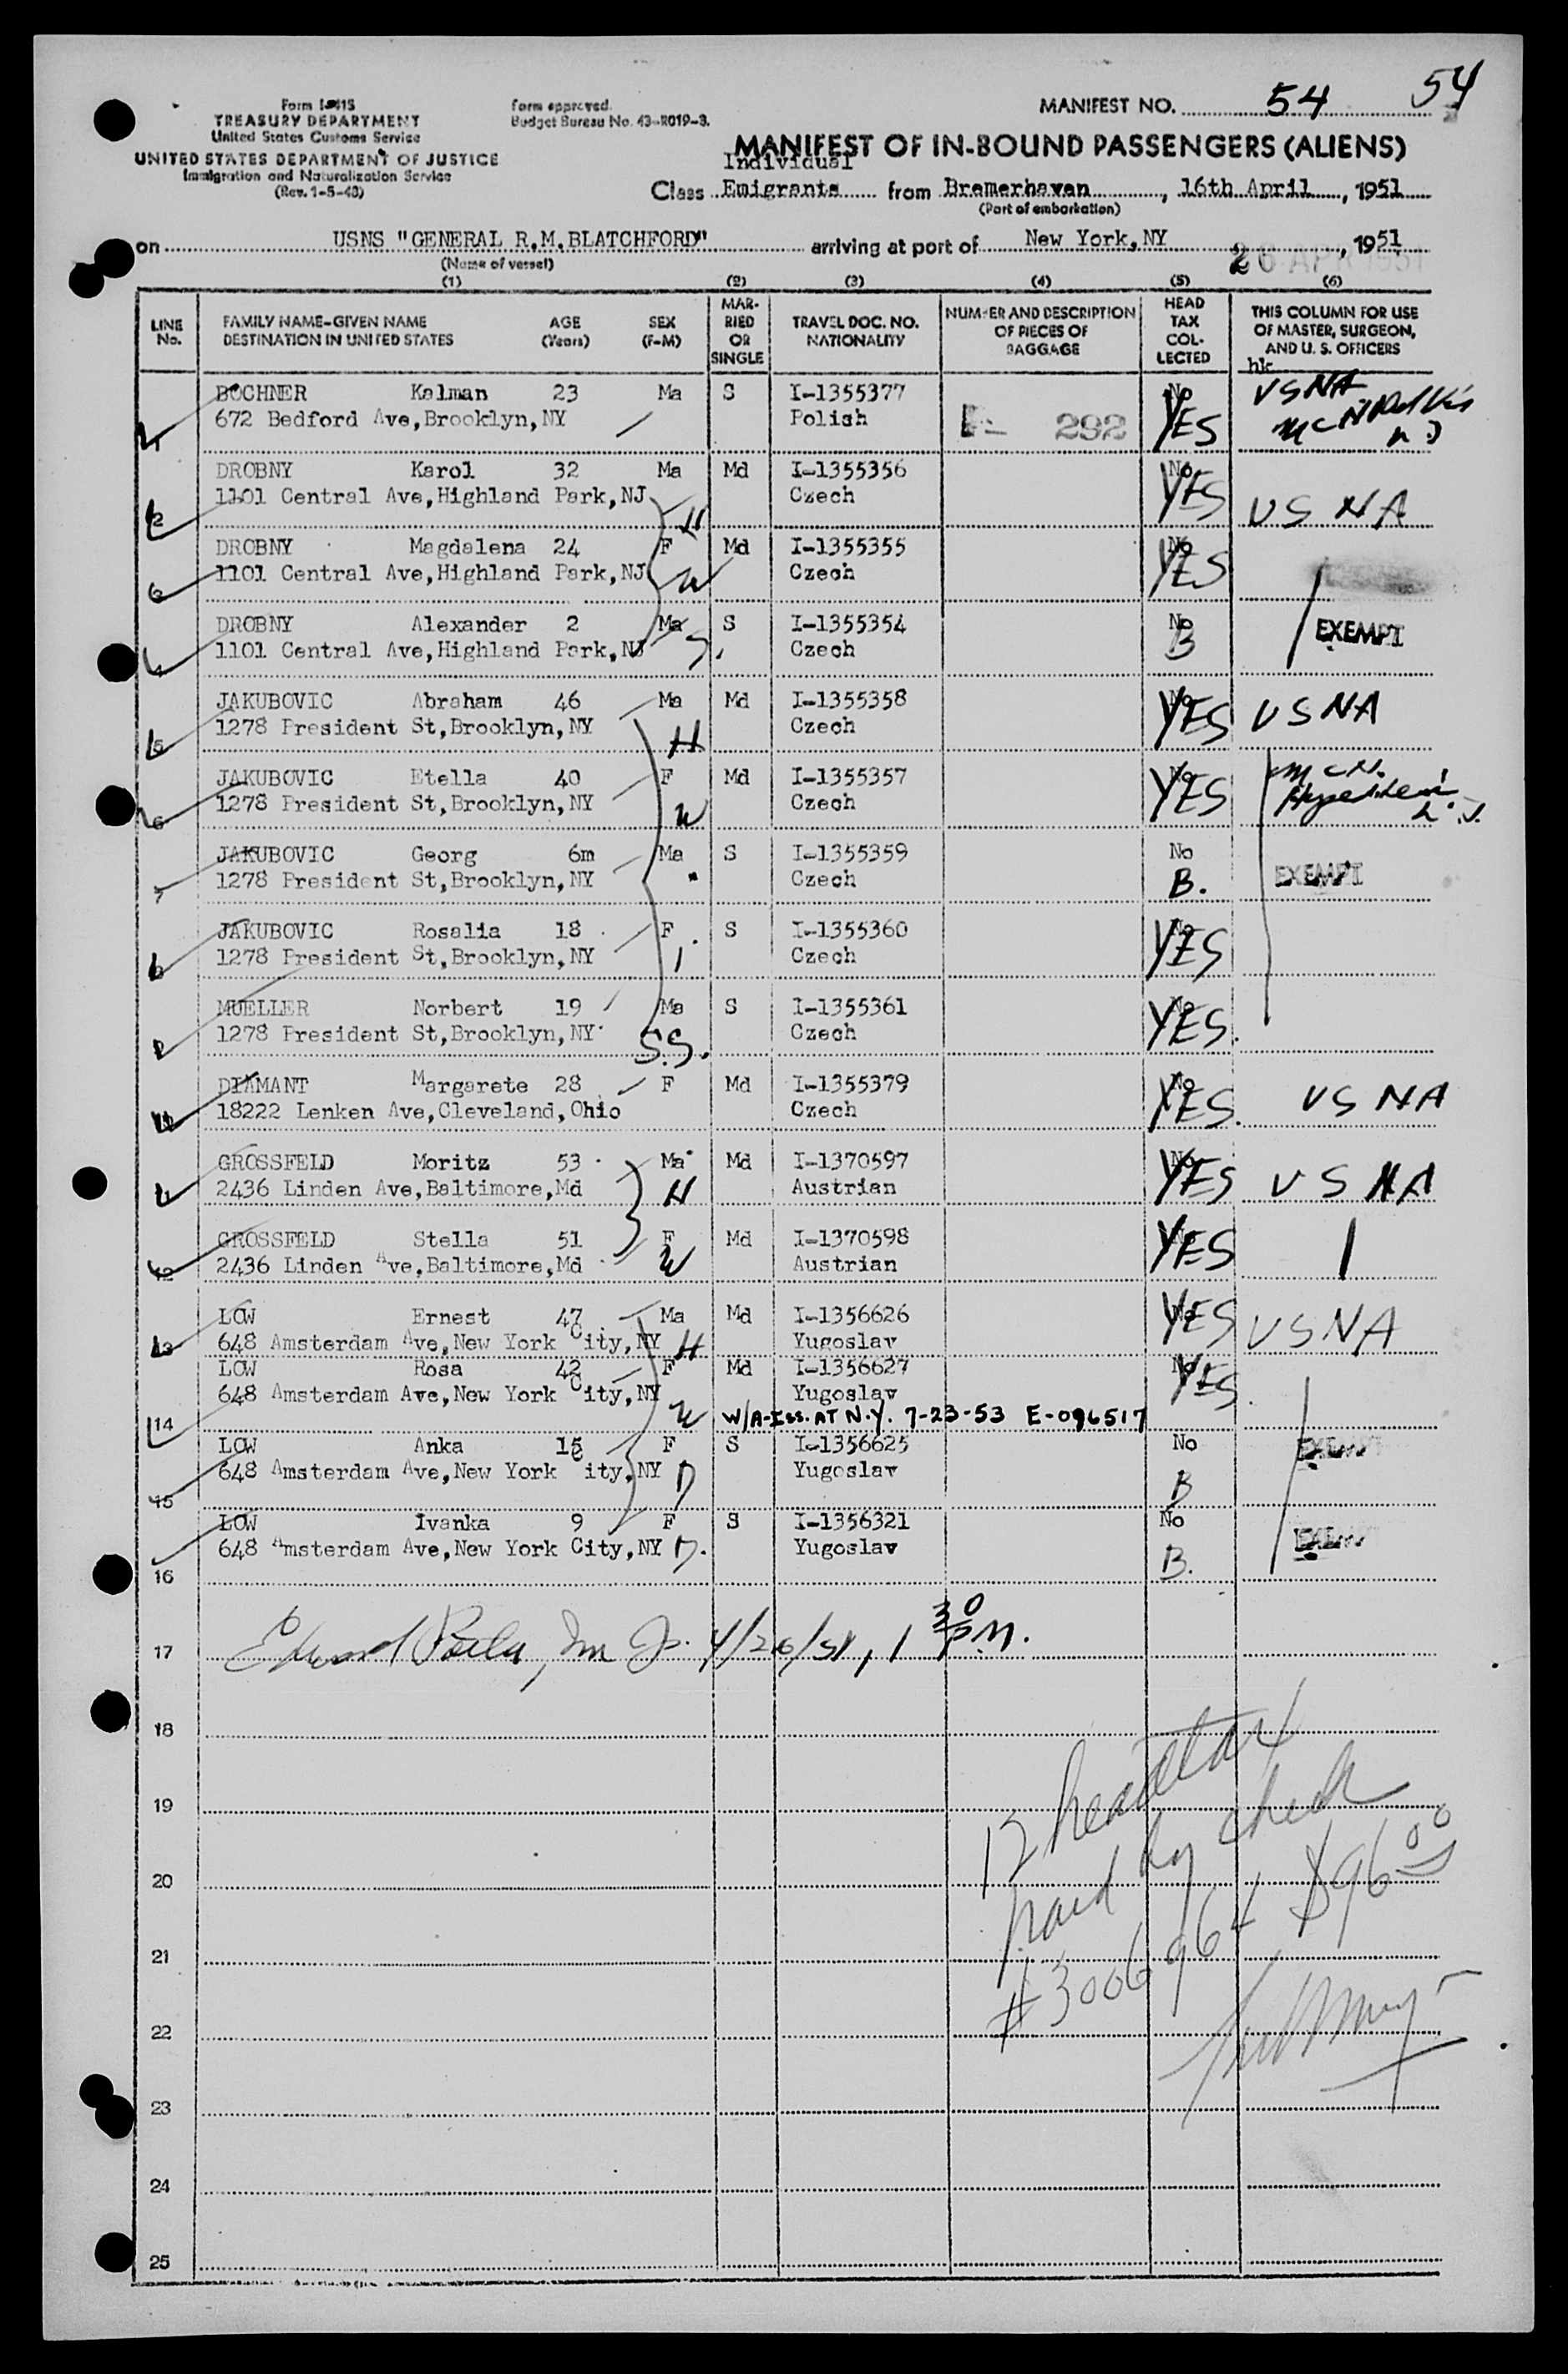 54
Form I-415
TREASURY DEPARTMENT
United States Customs Service
UNITED STATES DEPARTMENT OF JUSTICE
Immigration and Naturalization Service
(Rev. 1-5-48)
Form approved.
Budget Bureau No. 43-R019-3.
MANIFEST NO. 54
MANIFEST OF IN-BOUND PASSENGERS (ALIENS)
Individual
Class Emigrants from Bremerhaven, 16th April, 1951
(Port of embarkation)
on USNS "GENERAL R.M.BLATCHFORD" arriving at port of New York,NY 26 APR 1951, 1951
(Name of vessel)
(1) (2) (3) (4) (5) (6)
LINE No.
FAMILY NAME-GIVEN NAME AGE SEX
DESTINATION IN UNITED STATES (Years) (F-M)
MARRIED OR SINGLE
TRAVEL DOC. NO. NATIONALITY
NUMBER AND DESCRIPTION OF PIECES OF BAGGAGE
HEAD TAX COLLECTED
THIS COLUMN FOR USE OF MASTER, SURGEON, AND U. S. OFFICERS
hk
BOCHNER Kalman 23 Ma S I-1355377 No USNA
1 672 Bedford Ave,Brooklyn,NY Polish 292 YES
DROBNY Karol 32 Ma Md I-1355356 No
2 1101 Central Ave,Highland Park,NJ H Czech YES USNA
DROBNY Magdalena 24 F Md I-1355355 No
3 1101 Central Ave,Highland Park,NJ W Czech YES
DROBNY Alexander 2 Ma S I-1355354 No EXEMPT
4 1101 Central Ave,Highland Park,NJ S. Czech B
JAKUBOVIC Abraham 46 Ma Md I-1355358 No
5 1278 President St,Brooklyn,NY H Czech YES USNA
JAKUBOVIC Etella 40 F Md I-1355357 No
6 1278 President St,Brooklyn,NY W Czech YES
JAKUBOVIC Georg 6m Ma S I-1355359 No
7 1278 President St,Brooklyn,NY Czech B. EXEMPT
JAKUBOVIC Rosalia 18 F S I-1355360 No
8 1278 President St,Brooklyn,NY Czech YES
MUELLER Norbert 19 Ma S I-1355361 No
9 1278 President St,Brooklyn,NY S.S. Czech YES.
DIAMANT Margarete 28 F Md I-1355379 No
10 18222 Lenken Ave,Cleveland,Ohio Czech YES. USNA
GROSSFELD Moritz 53 Ma Md I-1370597 No
11 2436 Linden Ave,Baltimore,Md H Austrian YES USNA
GROSSFELD Stella 51 F Md I-1370598 No
12 2436 Linden Ave,Baltimore,Md W Austrian YES
LOW Ernest 47 Ma Md I-1356626 No
13 648 Amsterdam Ave,New York City,NY H Yugoslav YES USNA
LOW Rosa 42 F Md I-1356627 No
648 Amsterdam Ave,New York City,NY Yugoslav YES
14 W W/A-Iss. AT N.Y. 7-23-53 E-096517
LOW Anka 15 F S I-1356625 No EXEMPT
15 648 Amsterdam Ave,New York City,NY D Yugoslav B
LOW Ivanka 9 F S I-1356321 No EXEMPT
648 Amsterdam Ave,New York City,NY D. Yugoslav B.
16
17 4/26/51, 1 30 P.M.
18
12 headtax
19
paid by check
20
$96 00
21
#3006964
22
23
24
25